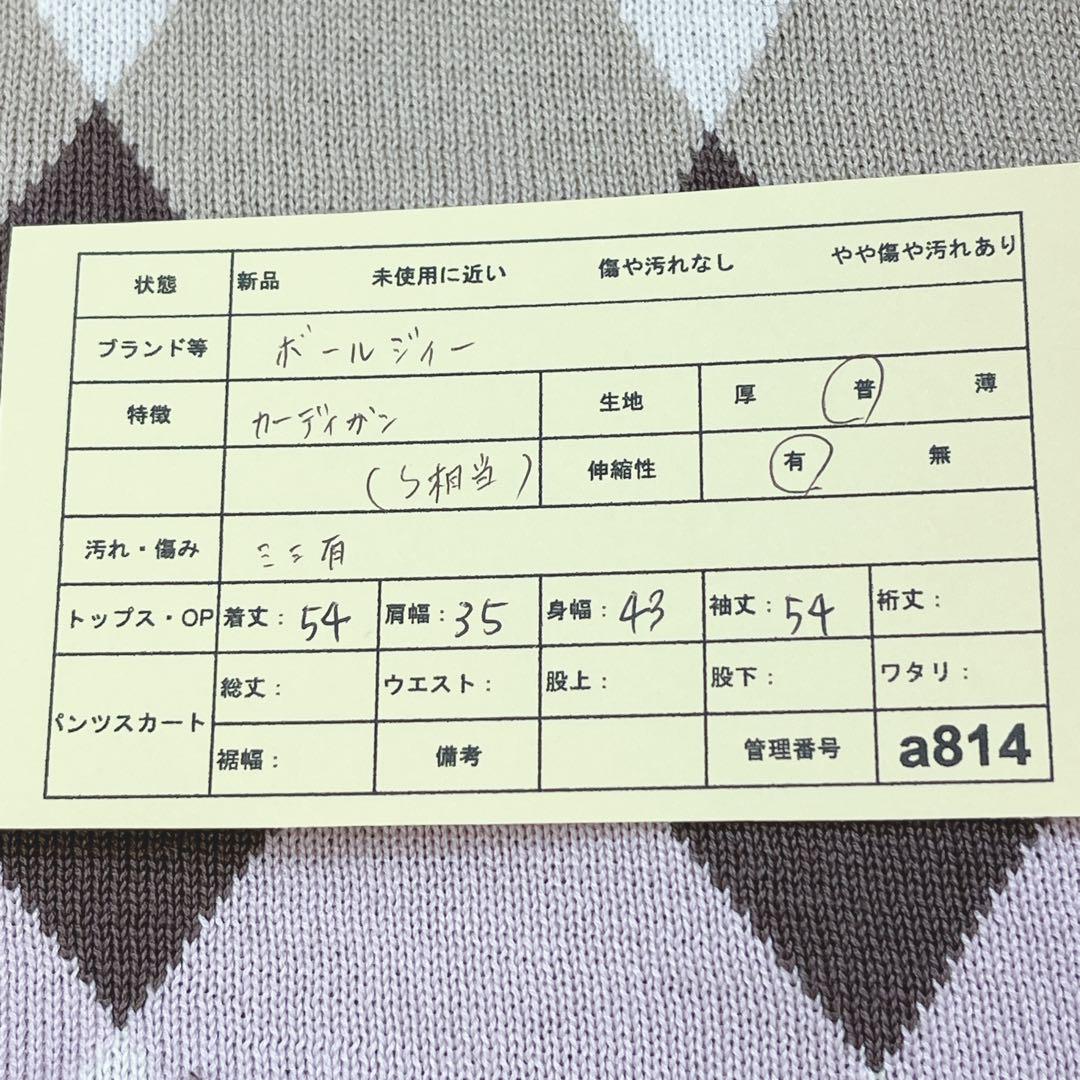 状態 新品 未使用に近い 傷や汚れなし やや傷や汚れあり
ブランド等 ボールジィー
特徴 カーディガン 生地 厚 普 薄
(S相当) 伸縮性 有 無
汚れ・傷み シミ有
トップス・OP 着丈:54 肩幅:35 身幅:43 袖丈:54 裄丈:
パンツスカート 総丈: ウエスト: 股上: 股下: ワタリ:
裾幅: 備考 管理番号 a814